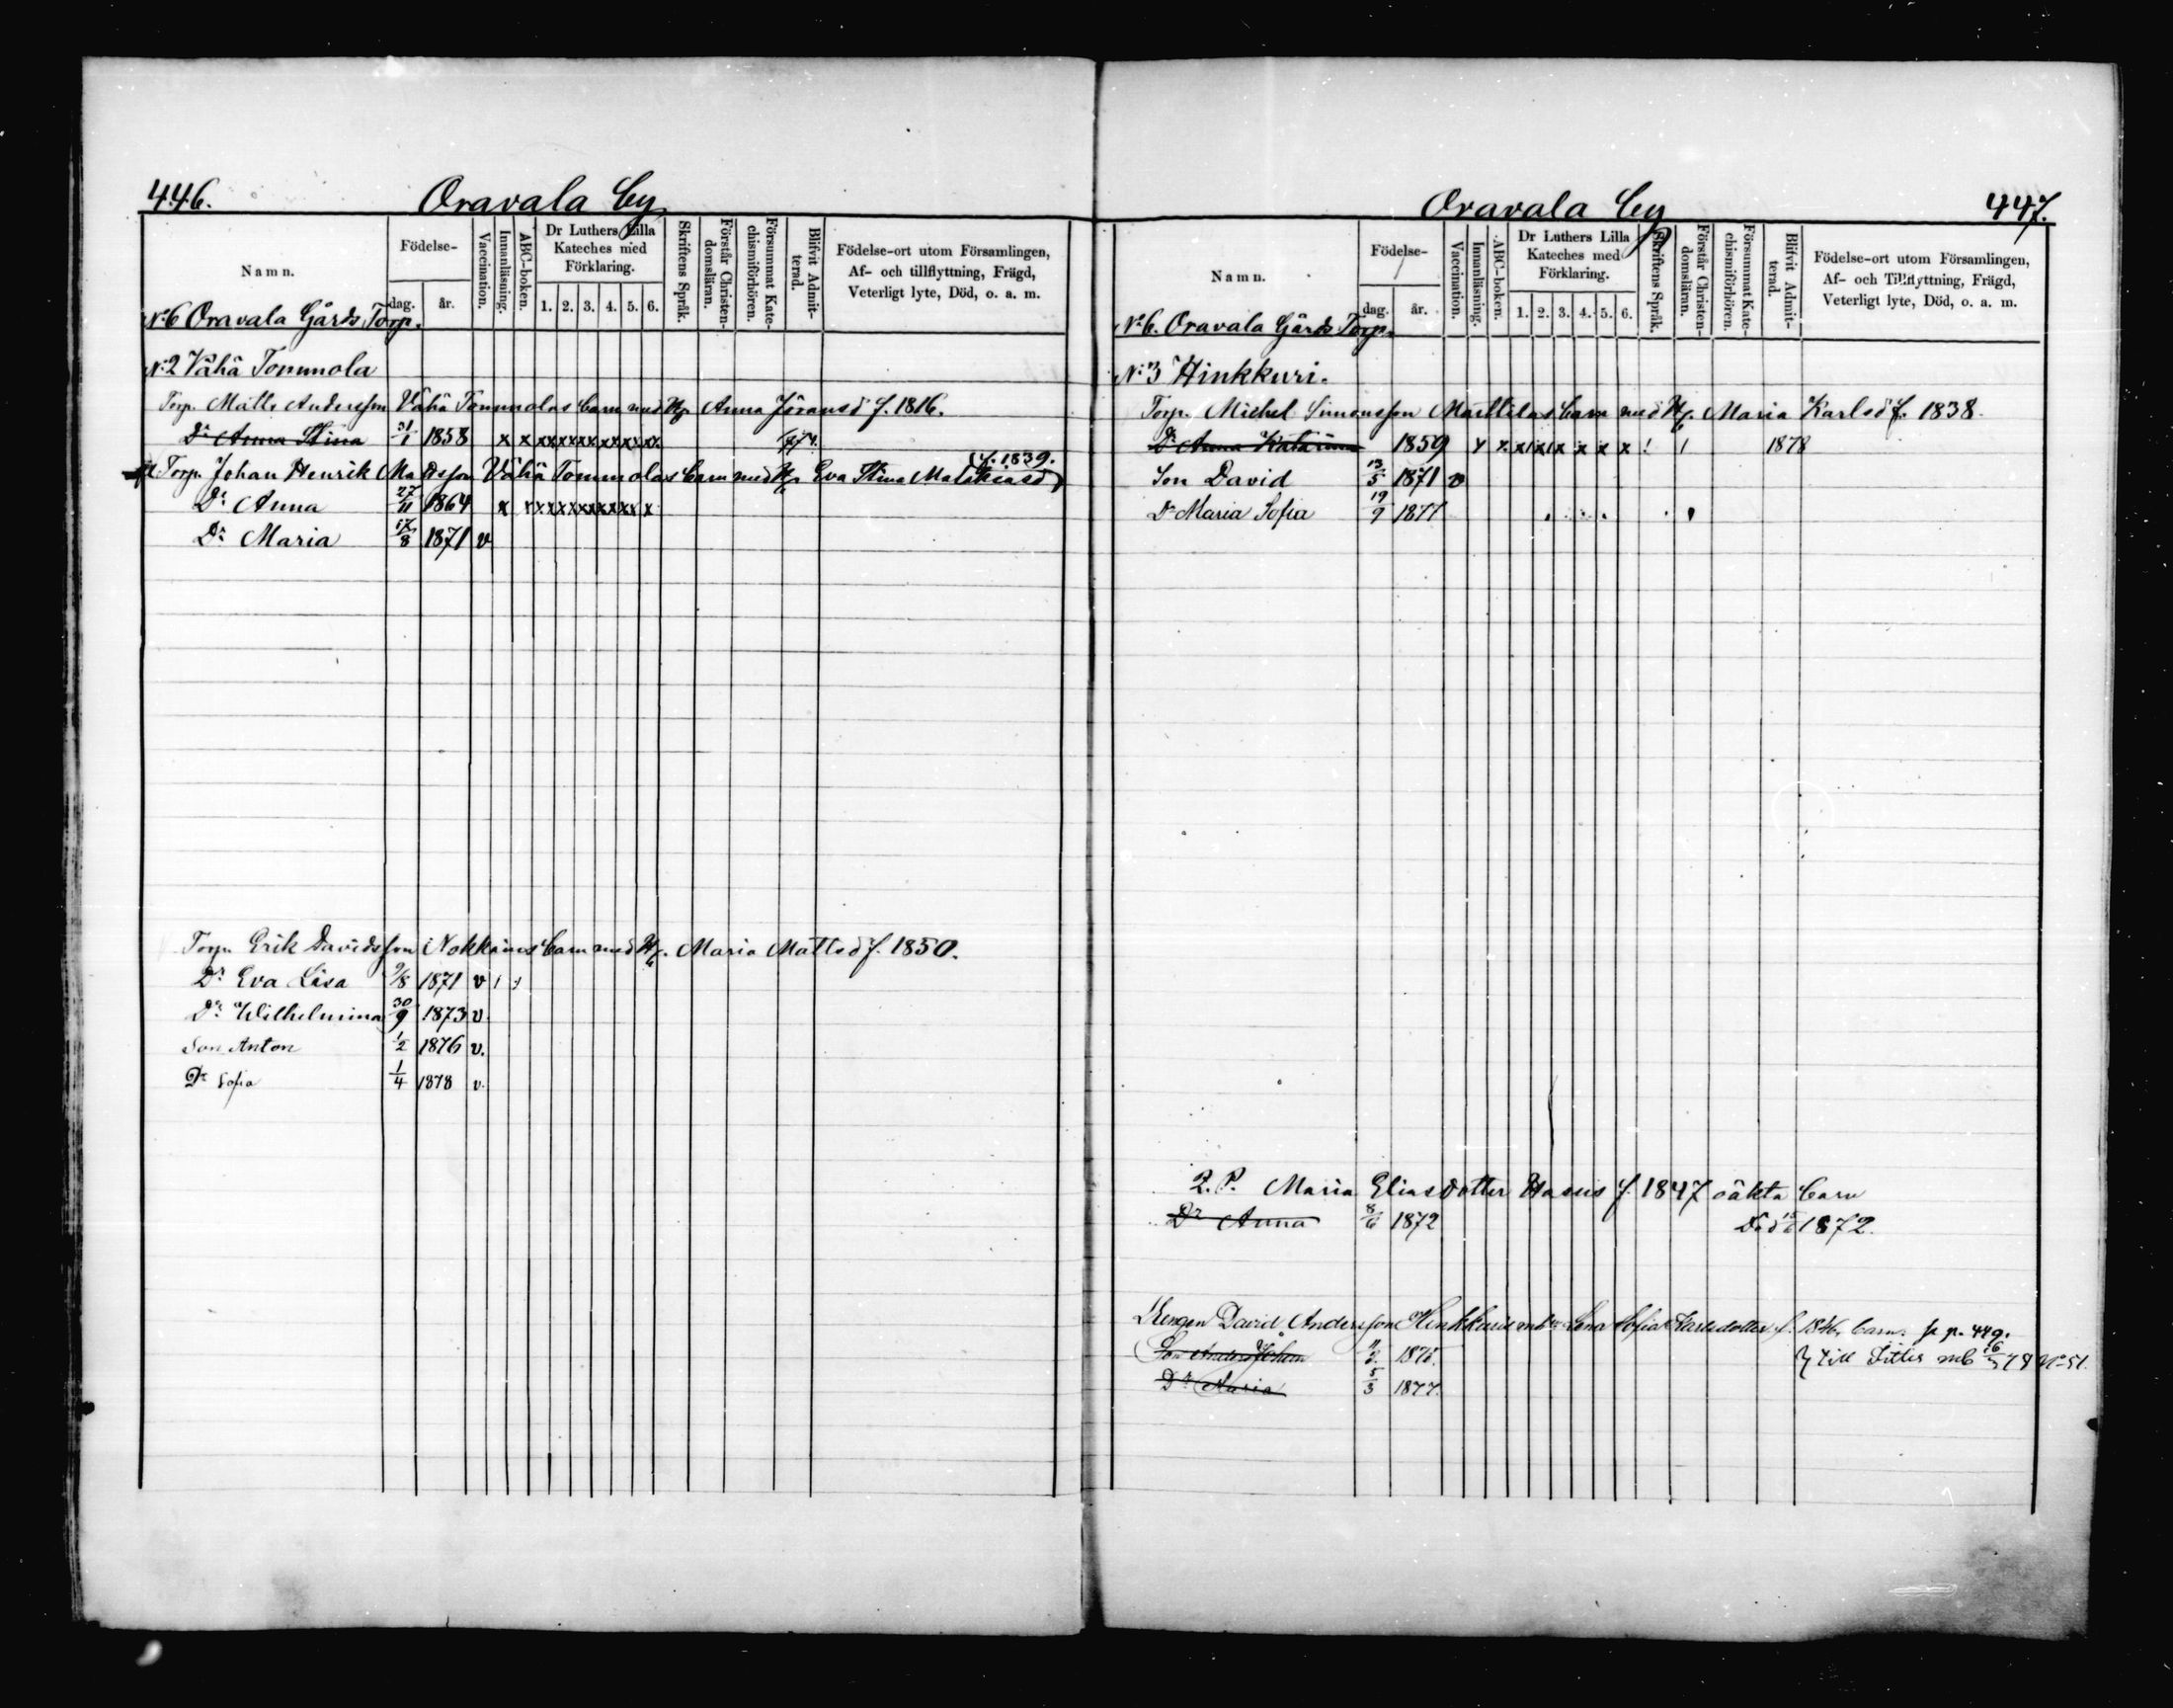 446. Oravala by
Namn. Födelse- dag. år. Vaccination. Innanläsning. ABC-boken. Dr Luthers Lilla Kateches med Förklaring. 1. 2. 3. 4. 5. 6. Skriftens Språk. Förstår Christen-domsläran. Försummat Kate-chismiförhören. Blifvit Admit-terad. Födelse-ort utom Församlingen, Af- och tillflyttning, Frägd, Veterligt lyte, Död, o. a. m.
No 6 Oravala Gårds Torp.
No 2 Vähä Tommola
Torp. Matts Andersson Vähä Tommolas barn med H. Anna Jöransd f. 1816.
Dr Anna Stina 31/1 1858 x x xxxxxxxxxxxx 74.
Torp. Johan Henrik Mattsson Vähä Tommolas barn med H. Eva Stina Malakiasd (f. 1839.)
Dr Anna 27/11 1864 x xxxxxxxxxxx x
Dr Maria 17/8 1871 v
Torp. Erik Davidsson Nokkains barn med H. Maria Mattsd f. 1850.
Dr Eva Lisa 9/8 1871 v
Dr Wilhelmina 30/9 1873 v
Son Anton 1/2 1876 v.
Dr Sofia 1/4 1878 v.
Oravala by 447.
Namn. Födelse- dag. år. Vaccination. Innanläsning. ABC-boken. Dr Luthers Lilla Kateches med Förklaring. 1. 2. 3. 4. 5. 6. Skriftens Språk. Förstår Christen-domsläran. Försummat Kate-chismiförhören. Blifvit Admit-terad. Födelse-ort utom Församlingen, Af- och Tillflyttning, Frägd, Veterligt lyte, Död, o. a. m.
No 6. Oravala Gårds Torp.
No 3 Hinkkuri.
Torp. Michel Simonsson Marttilas barn med H. Maria Karlsd f. 1838.
Dr Anna Katarina 1859 x x x x x x x x 1878
Son David 13/5 1871 v
Dr Maria Sofia 19/9 1877
Q. P. Maria Eliasdotter Hasus f. 1847 oäkta barn
Dr Anna 8/6 1872 Död 15/6 1872.
Drengen David Andersson Hinkkuris m h Lena Sofia Karlsdotter f. 1846. barn. p. 449.
Son Anders Johan 11/2 1875. } till Sittis mb 16/3 78 No 51.
Dr Maria 5/3 1877.